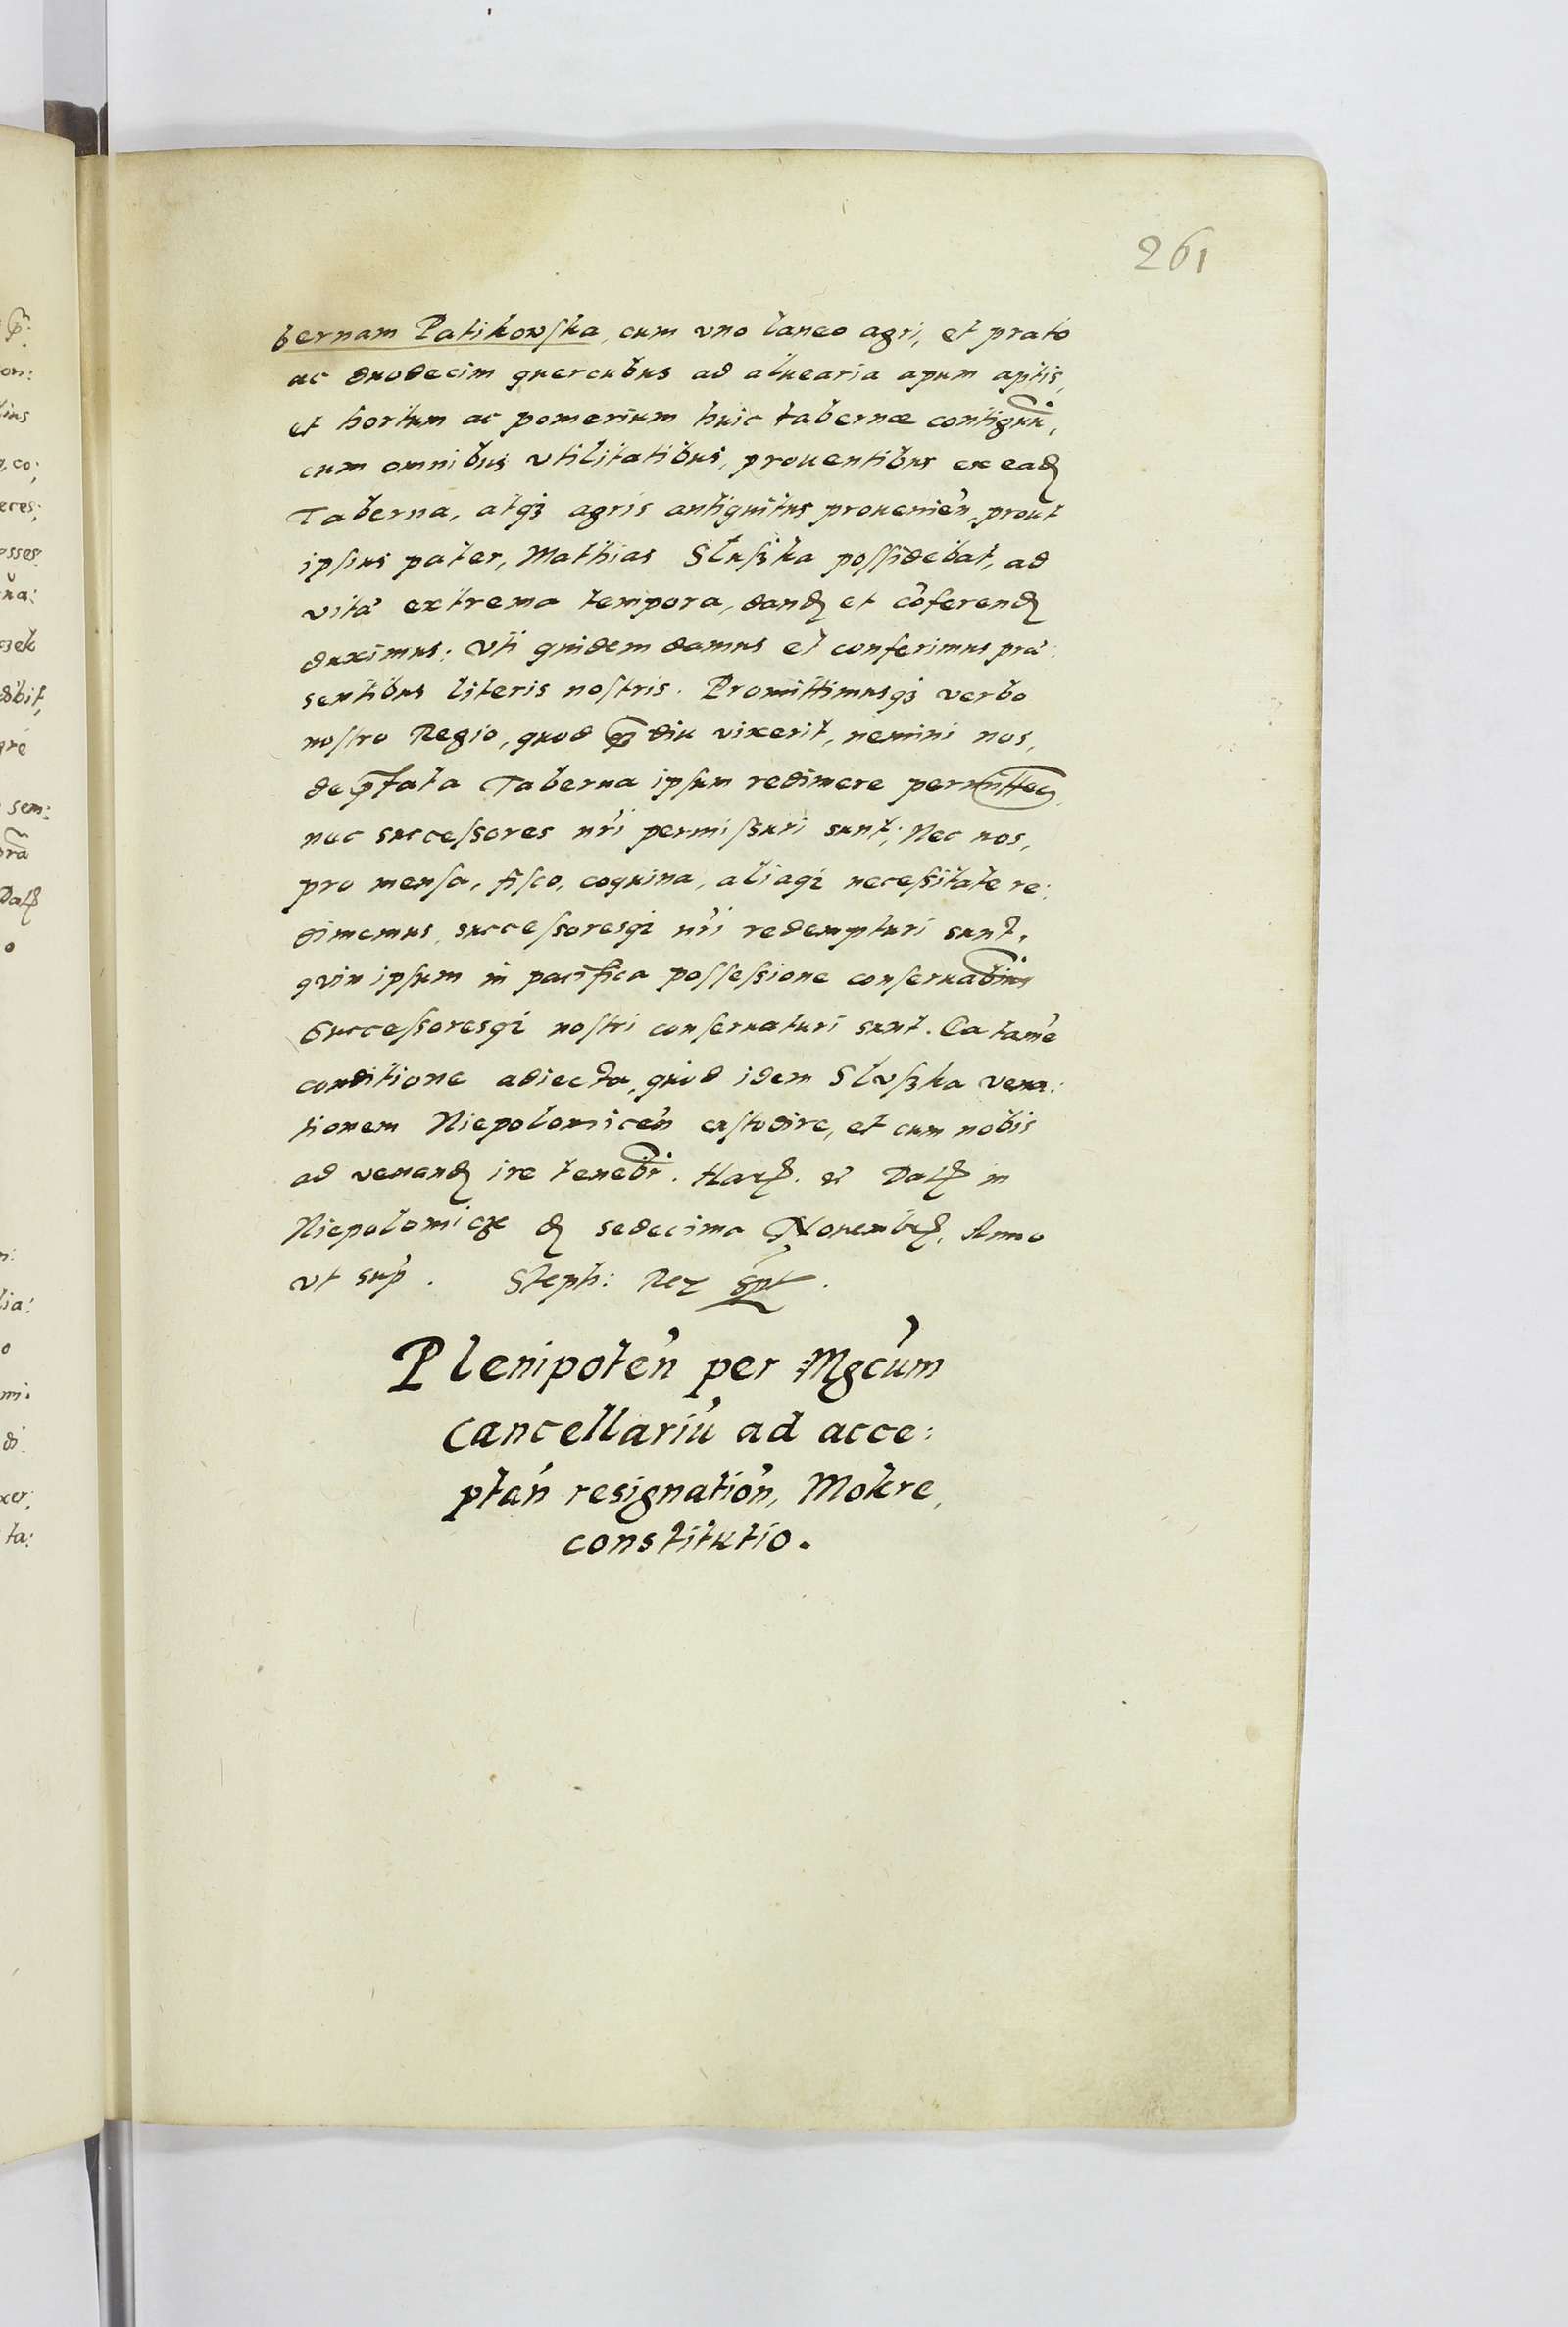 261
bernam Patikowſka, cum vno laneo agri, et prato
ac duodecim quercubus ad aluearia apum aptis,
et hortum ac pomerium huic tabernæ contiguũ,
cum omnibus vtilitatibus, prouentibus ex eaꝺ
Taberna, atqꝫ agris antiquitus prouenień, prout
ipſius pater, Mathias Sluſʒka poſſidebat, ad
vitæ extrema tempora, danꝺ et cõferenꝺ
duximus: Vti quidem damus et conferimus præ:
sentibus literis noſtris. Promittimusqꝫ verbo
noſtro Regio, quod qᷓ diu vixerit, nemini nos,
de p̃fata Taberna ipſum redimere permittem9,
nec succeſsores nr̃i permiſsuri sunt; Nec nos,
pro menſa, fiſco, coquina, aliaqꝫ neceſsitate re:
dimemus, succeſsoresqꝫ nr̃i redempturi sunt,
quin ipſum in pacifica poſſeſsione conſeruabim9
Succeſsoresqꝫ noſtri conſeruaturi sunt. Ea tamẽ
conditione adiecta, quod idem Sluſʒka vena:
tionem Niepolomiceń cuſtodire, et cum nobis
ad venanꝺ ire tenebr̃. Harꝝ. &̃ Datꝝ in
Niepolomicze ꝺ sedecima Nouembrꝝ, Anno
vt sup̃. Steph: Rex sp̃t.
Plenipoteń per Mgcũm
cancellariũ ad acce:
ptań resignatioń, Mokre,
constitutio.